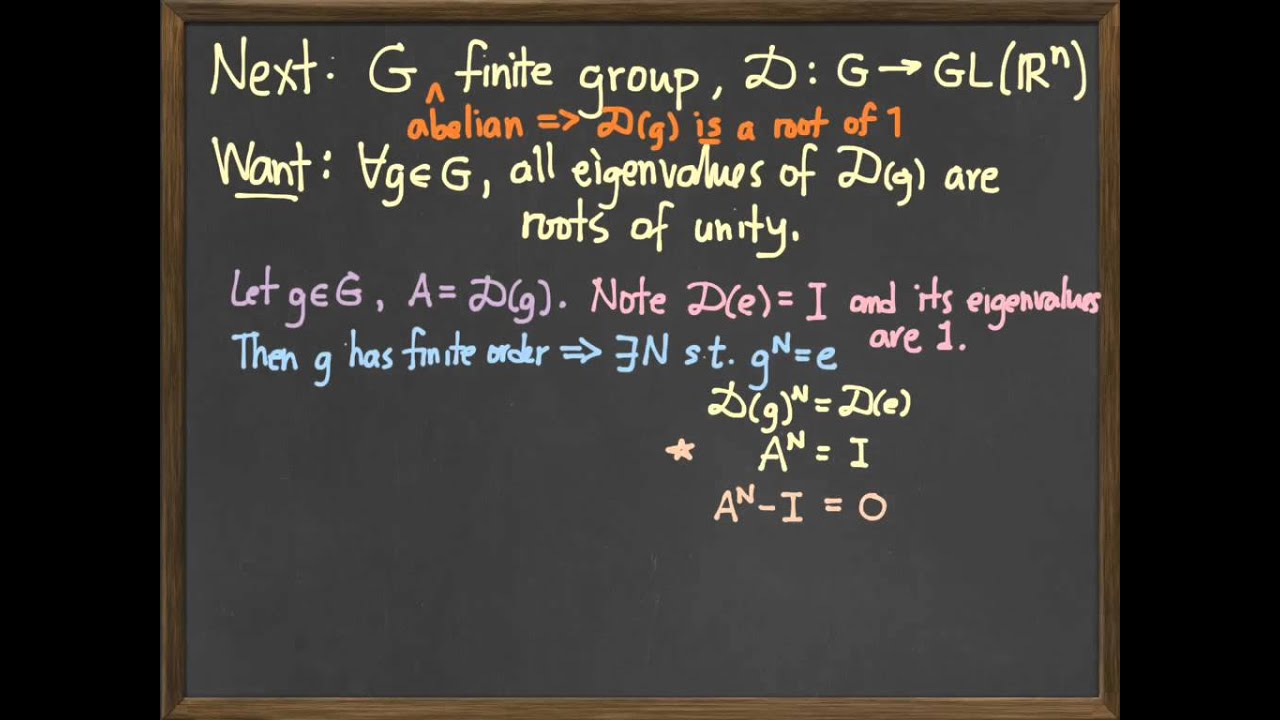 Next: G ^ finite group, D: G → GL(ℝⁿ)
abelian => D(g) is a root of 1
Want: ∀g∈G, all eigenvalues of D(g) are
roots of unity.
Let g∈G, A = D(g). Note D(e) = I and its eigenvalues
are 1.
Then g has finite order => ∃N s.t. gᴺ=e
D(g)ᴺ = D(e)
* Aᴺ = I
Aᴺ - I = 0